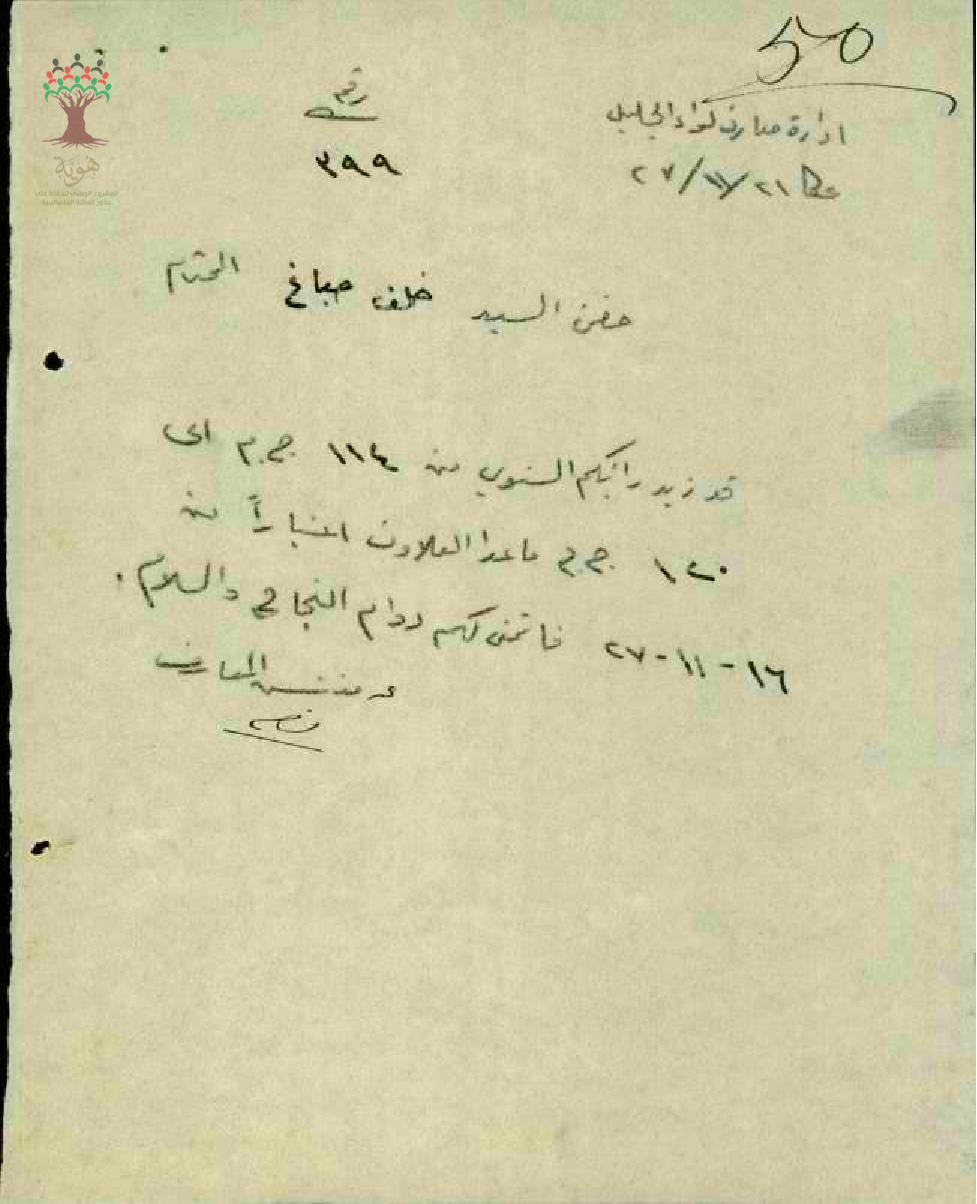 50
ادارة معارف لواء الجليل
عكا ٢١/١١/٢٧
رقم
٣٩٩
هوية
المشروع الوطني للحفاظ على
جذور العائلة الفلسطينية
حضرة السيد خلف صباغ المحترم
قد زيد راتبكم السنوي من ١١٤ ج.م الى
١٢٠ ج.م ماعدا العلاوة اعتباراً من
١٦-١١-٢٧ فاتمنى لكم دوام النجاح والسلام.
مفتش المعارف